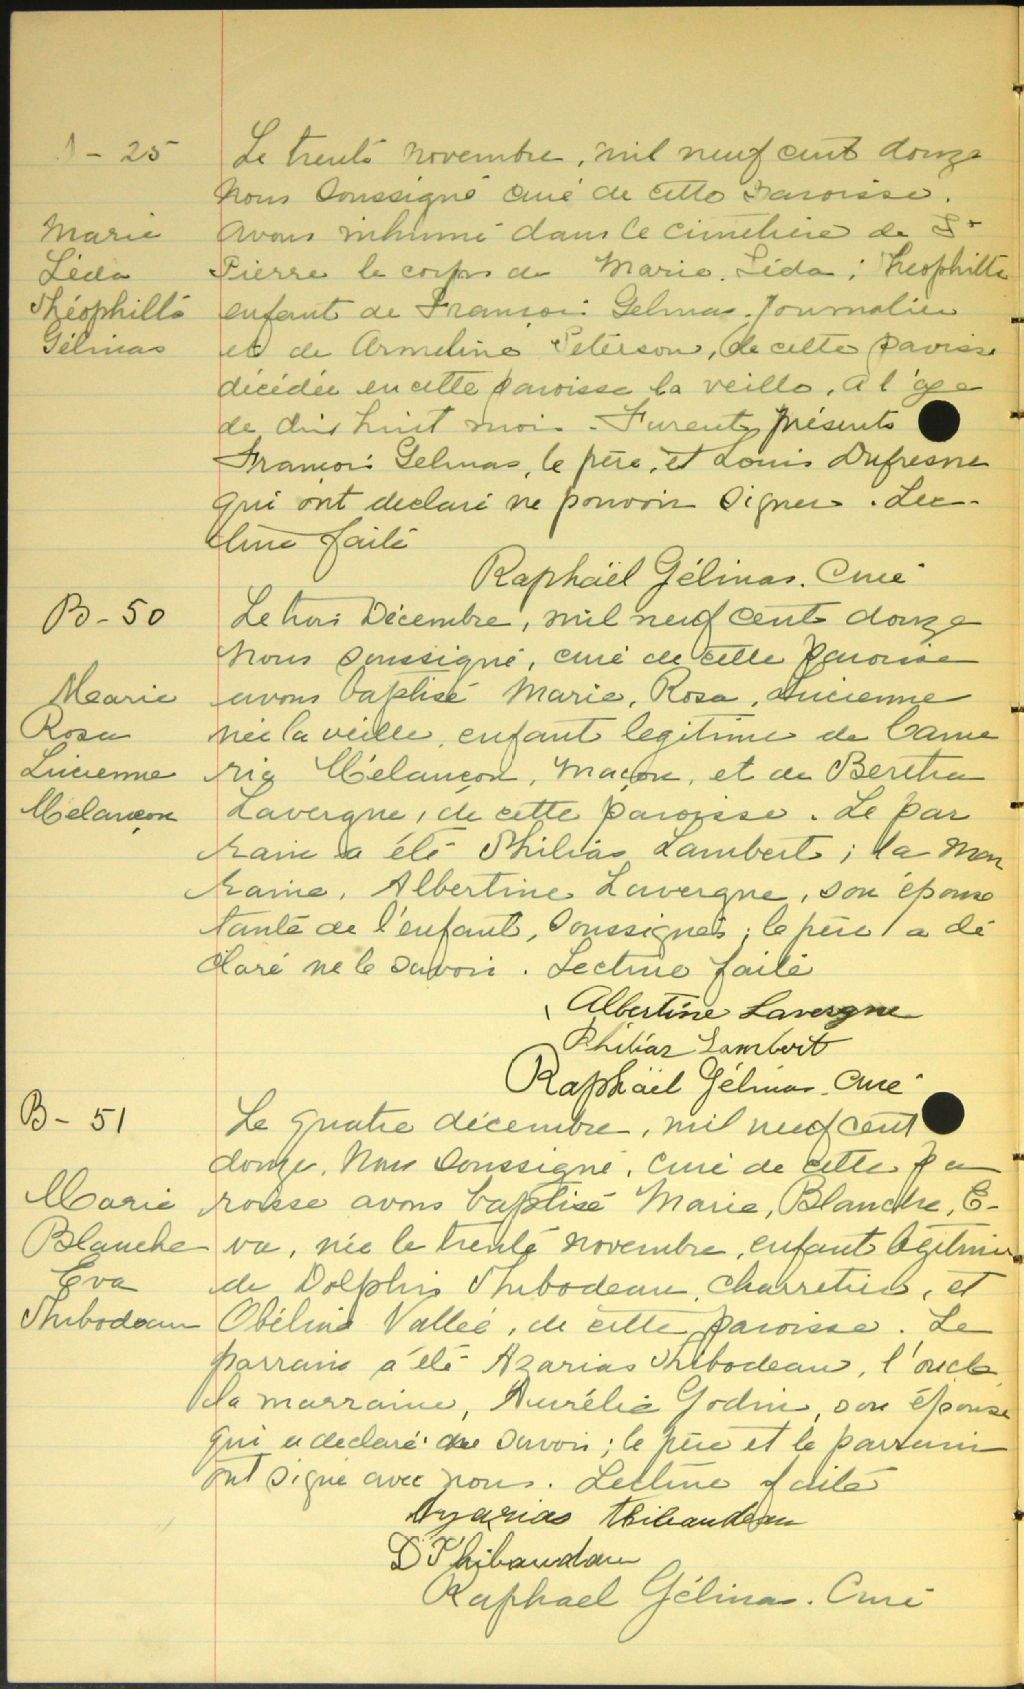 - 25
Le trente novembre, mil neuf cent douze
Nous soussigné curé de cette paroisse.
Marie
avons inhumé dans le cimetière de St
Léda
Pierre le corps de Marie, Léda, Théophilte
Théophilte
enfant de François Gelinas, journalier
Gélinas
et de Armeline Péterson, de cette paroisse
décédée en cette paroisse la veille, a l'age
de dix huit mois. Furent présents
François Gelinas, le père, et Louis Dufresne
qui ont declaré ne pouvoir signer. Lec-
ture faite
Raphaël Gélinas. Curé
B - 50
Le trois Décembre, mil neuf cent douze
Nous soussigné, curé de cette paroisse
Marie
avons baptisé Marie, Rosa, Lucienne
Rosa
née la veille, enfant legitime de
Lucienne
Mélançon, maçon, et de Bertha
Mélançon
Lavergne, de cette paroisse. Le par
rain a été Philias Lambert; la mar
raine, Albertine Lavergne, son épouse
tante de l'enfant, soussignés; le père a dé
claré ne le savoir. Lecture faite
Albertine Lavergne
Philias Lambert
Raphaël Gélinas. Curé
B - 51
Le quatre décembre, mil neuf cent
douze, Nous soussigné, curé de cette pa
Marie
roisse avons baptisé Marie, Blanche, E-
Blanche
va, née le trente novembre, enfant légitime
Eva
de Dolphis Thibodeau, charretier, et
Thibodeau
Obéline Vallée, de cette paroisse. Le
parrain a été Azarias Thibodeau, l'oncle
la marraine, Aurélie Godin, son épouse
qui a declaré ne savoir; le père et le parrain
ont signé avec nous. Lecture faite
Azarias Thibaudeau
D Thibaudau
Raphael Gélinas. Curé